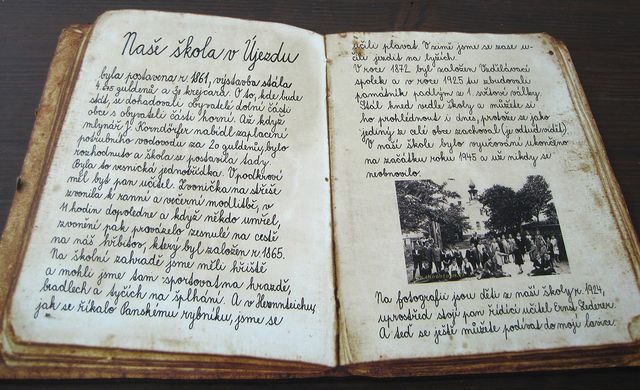 Naše škola v Újezdu
byla postavena r. 1861, výstavba stála
guldenů a 32 krejcarů. O to, kde bude
stát, se dohadovali obyvatelé dolní části
obce s obyvateli části horní. Až když
mlynář J. Korndörfer nabídl zaplacení
potrubního vodovodu za 20 guldenů, bylo
rozhodnuto a škola se postavila tady.
Byla to vesnická jednotřídka. V podkroví
měl byt pan učitel. Zvonička na střeše
zvonila k ranní a večerní modlitbě, v
11 hodin dopoledne a když někdo umřel,
zvonění pak provázelo zesnulé na cestě
na náš hřbitov, který byl založen r. 1865.
Na školní zahradě jsme měli hřiště
a mohli jsme tam sportovat na hrazdě,
bradlech a tyčích na šplhání. A v Herrnteichu,
jak se říkalo Panskému rybníku, jsme se
učili plavat. V zimě jsme se zase u-
čili jezdit na lyžích.
V roce 1872 byl založen Vzdělávací
spolek a v roce 1925 tu vybudovali
památník padlým z 1. světové války.
Stál hned vedle školy a můžete si
ho prohlédnout i dnes, protože se jako
jediný z celé obce zachoval (je odtud vidět).
V naší škole bylo vyučování ukončeno
na začátku roku 1945 a už nikdy se
neobnovilo.
Na fotografii jsou děti z naší školy r. 1924,
uprostřed stojí pan řídící učitel Ernst Lederer.
A teď se ještě můžete podívat do mojí lavice.